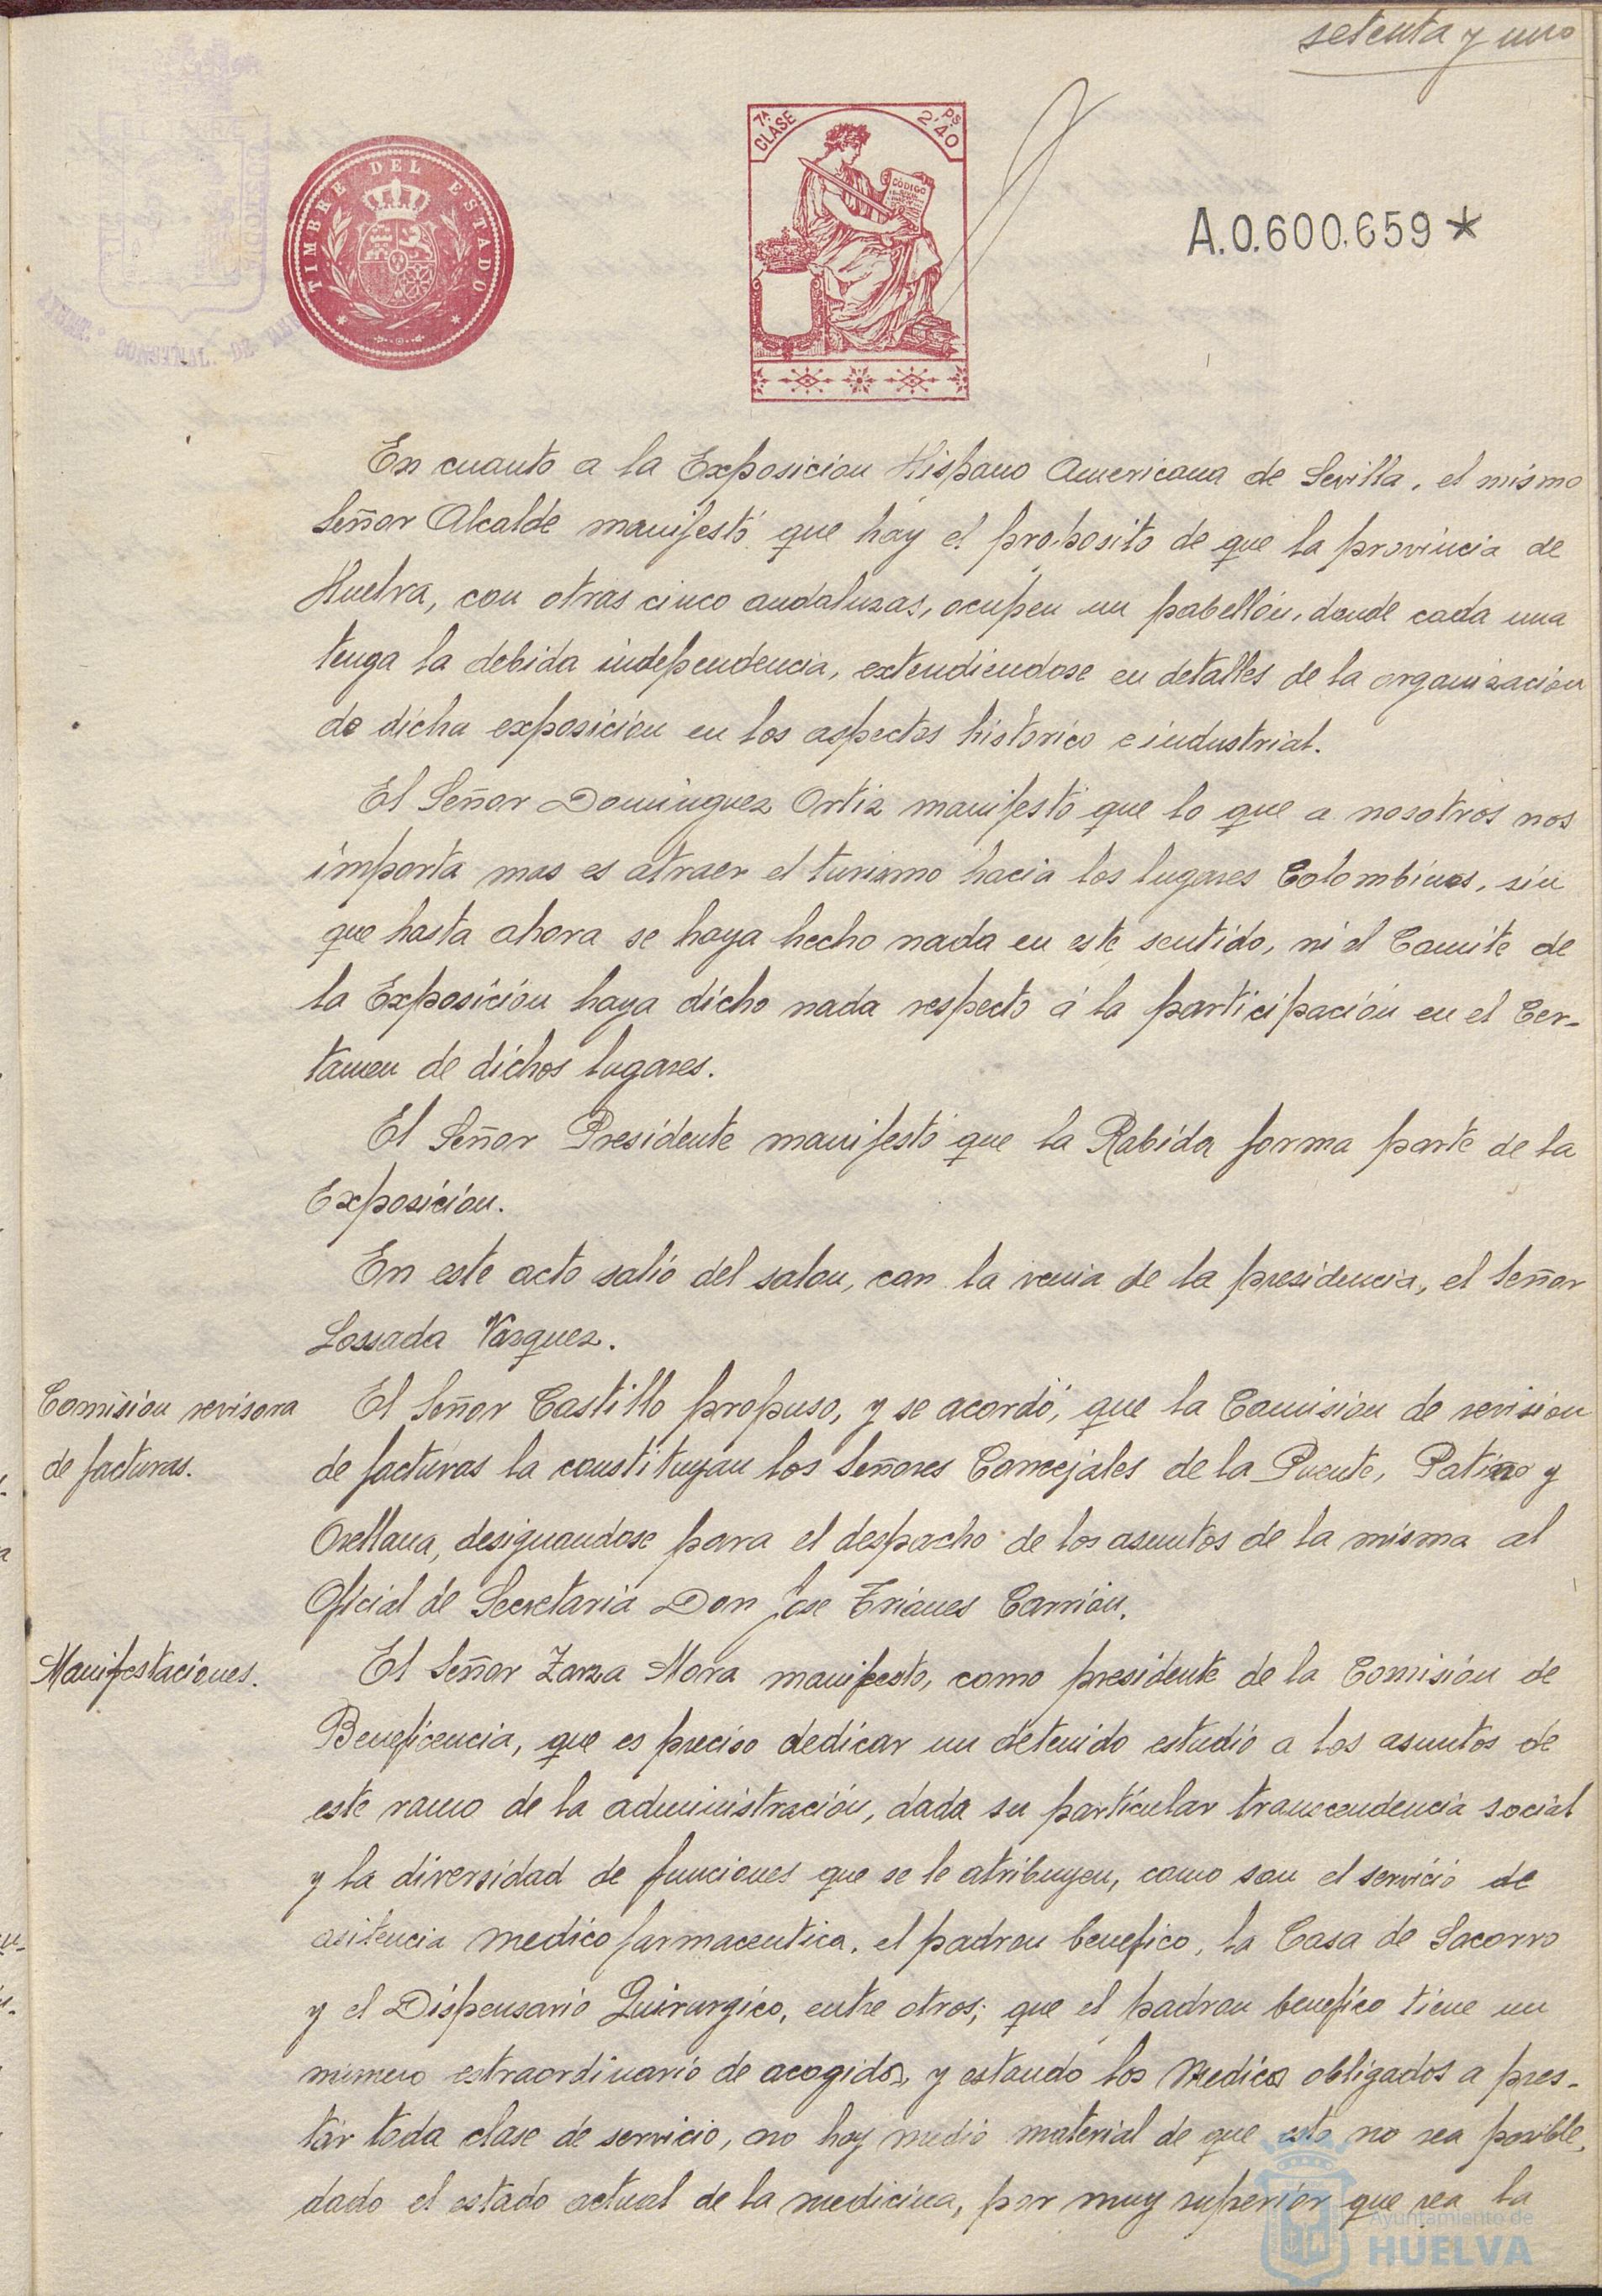 setenta y uno
7ª CLASE
Ps 2'40
CÓDIGO
TIMBRE DEL ESTADO
A.0.600.659*
En cuanto a la Exposicion Hispano Americana de Sevilla, el mismo
Señor Alcalde manifestó que hay el proposito de que la provincia de
Huelva, con otras cinco andaluzas, ocupen un pabellón, donde cada una
tenga la debida independencia, extendiendose en detalles de la organización
de dicha exposición en los aspectos historico e industrial.
El Señor Dominguez Ortiz manifestó que lo que a nosotros nos
importa mas es atraer el turismo hacia los lugares Colombinos, sin
que hasta ahora se haya hecho nada en este sentido, ni el Comite de
la Exposición haya dicho nada respecto á la participación en el Cer-
tamen de dichos lugares.
El Señor Presidente manifestó que la Rabida forma parte de la
Exposición.
En este acto salió del salon, con la venia de la presidencia, el Señor
Lossada Vazquez.
Comision revisora
de facturas.
El Señor Castillo propuso, y se acordó, que la Comision de revision
de facturas la constituyan los Señores Concejales de la Puente, Patiño y
Orellana, designandose para el despacho de los asuntos de la misma al
Oficial de Secretaria Don Jose Trianes Carrión.
Manifestaciones.
El Señor Zarza Mora manifesto, como presidente de la Comisión de
Beneficencia, que es preciso dedicar un detenido estudio a los asuntos de
este ramo de la administración, dada su particular transcendencia social
y la diversidad de funciones que se le atribuyen, como son el servicio de
asitencia medico farmaceutica, el padron benefico, la Casa de Socorro
y el Dispensario Quirurgico, entre otros; que el padron benefico tiene un
numero estraordinario de acogidos, y estando los Medicos obligados a pres-
tar toda clase de servicio, no hay medio material de que esto no sea posible,
dado el estado actual de la medicina, por muy superior que sea la
Ayuntamiento de
HUELVA